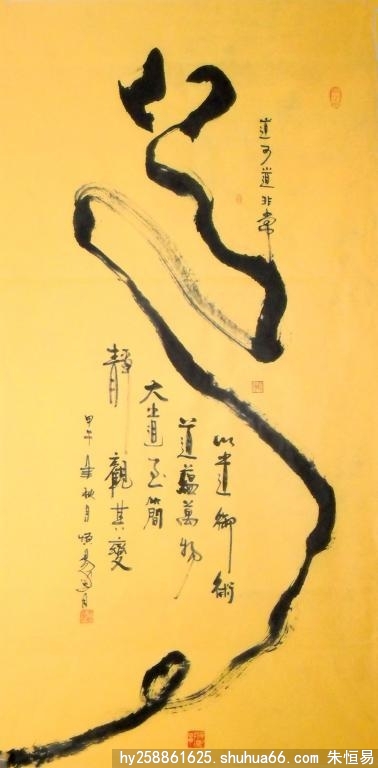 道
道可道非常
以道御術
道蘊萬物
大道至簡
靜觀其變
甲午年秋月恒易
hy258861625.shuhua66.com 朱恒易